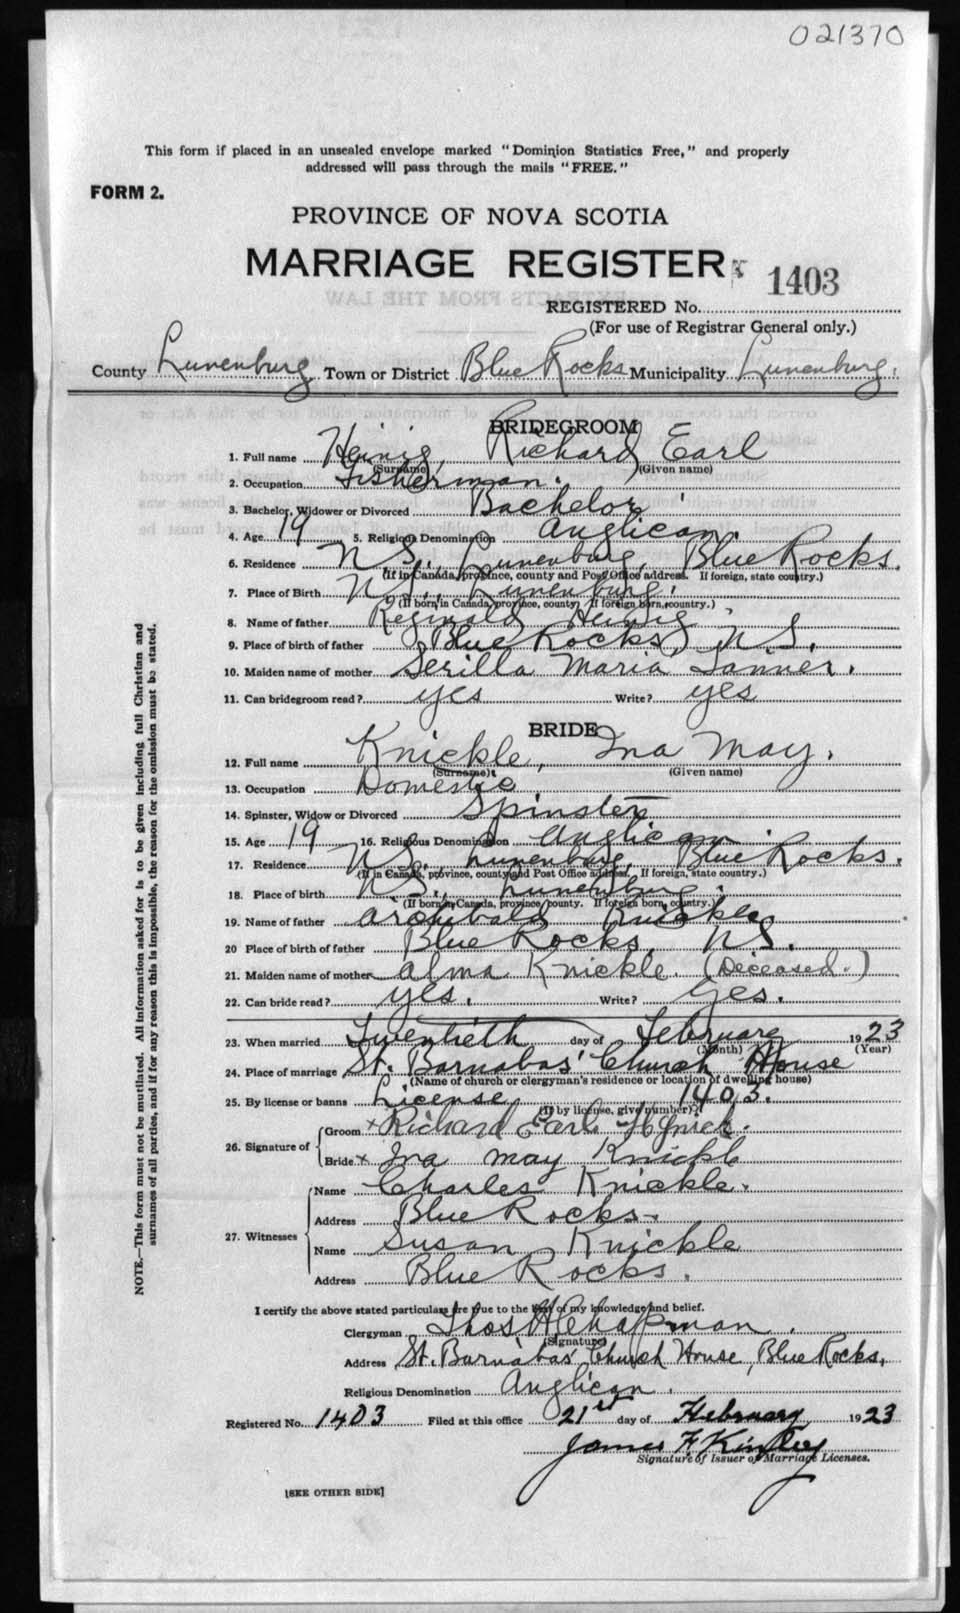 021370
This form if placed in an unsealed envelope marked "Dominion Statistics Free," and properly
addressed will pass through the mails "FREE."
FORM 2.
PROVINCE OF NOVA SCOTIA
MARRIAGE REGISTER
1403
REGISTERED No.
(For use of Registrar General only.)
County Lunenburg Town or District Blue Rocks Municipality Lunenburg.
BRIDEGROOM
1. Full name Heinig, Richard Earl
(Surname) (Given name)
2. Occupation Fisherman.
3. Bachelor, Widower or Divorced Bachelor
4. Age 19 5. Religious Denomination Anglican.
6. Residence N.S., Lunenburg, Blue Rocks.
(If in Canada, province, county and Post Office address. If foreign, state country.)
7. Place of Birth N.S., Lunenburg.
(If born in Canada, province, county. If foreign born, country.)
8. Name of father Reginald Heinig
9. Place of birth of father Blue Rocks, N.S.
10. Maiden name of mother Serilla Maria Tanner.
11. Can bridegroom read? yes Write? yes
BRIDE
12. Full name Knickle, Ina May.
(Surname) (Given name)
13. Occupation Domestic
14. Spinster, Widow or Divorced Spinster
15. Age 19 16. Religious Denomination Anglican.
17. Residence N.S., Lunenburg, Blue Rocks.
(If in Canada, province, county and Post Office address. If foreign, state country.)
18. Place of birth N.S., Lunenburg.
(If born in Canada, province county. If foreign born, country.)
19. Name of father Archibald Knickle
20 Place of birth of father Blue Rocks, N.S.
21. Maiden name of mother Alma Knickle. (Deceased.)
22. Can bride read? yes. Write? yes.
23. When married Twentieth day of February 1923
(Month) (Year)
24. Place of marriage St. Barnabas' Church House
(Name of church or clergyman's residence or location of dwelling house)
25. By license or banns License 1403.
(If by license, give number)
26. Signature of Groom x Richard Earl
Bride x Ina may Knickle
27. Witnesses Name Charles Knickle.
Address Blue Rocks.
Name Susan Knickle
Address Blue Rocks.
I certify the above stated particulars are true to the best of my knowledge and belief.
Clergyman Thos H Chapman.
(Signature)
Address St. Barnabas' Church House, Blue Rocks.
Religious Denomination Anglican.
Registered No. 1403 Filed at this office 21st day of February 1923
James F Kinley
Signature of Issuer of Marriage Licenses.
[SEE OTHER SIDE]
NOTE.—This form must not be mutilated. All information asked for is to be given including full Christian and
surnames of all parties, and if for any reason this is impossible, the reason for the omission must be stated.